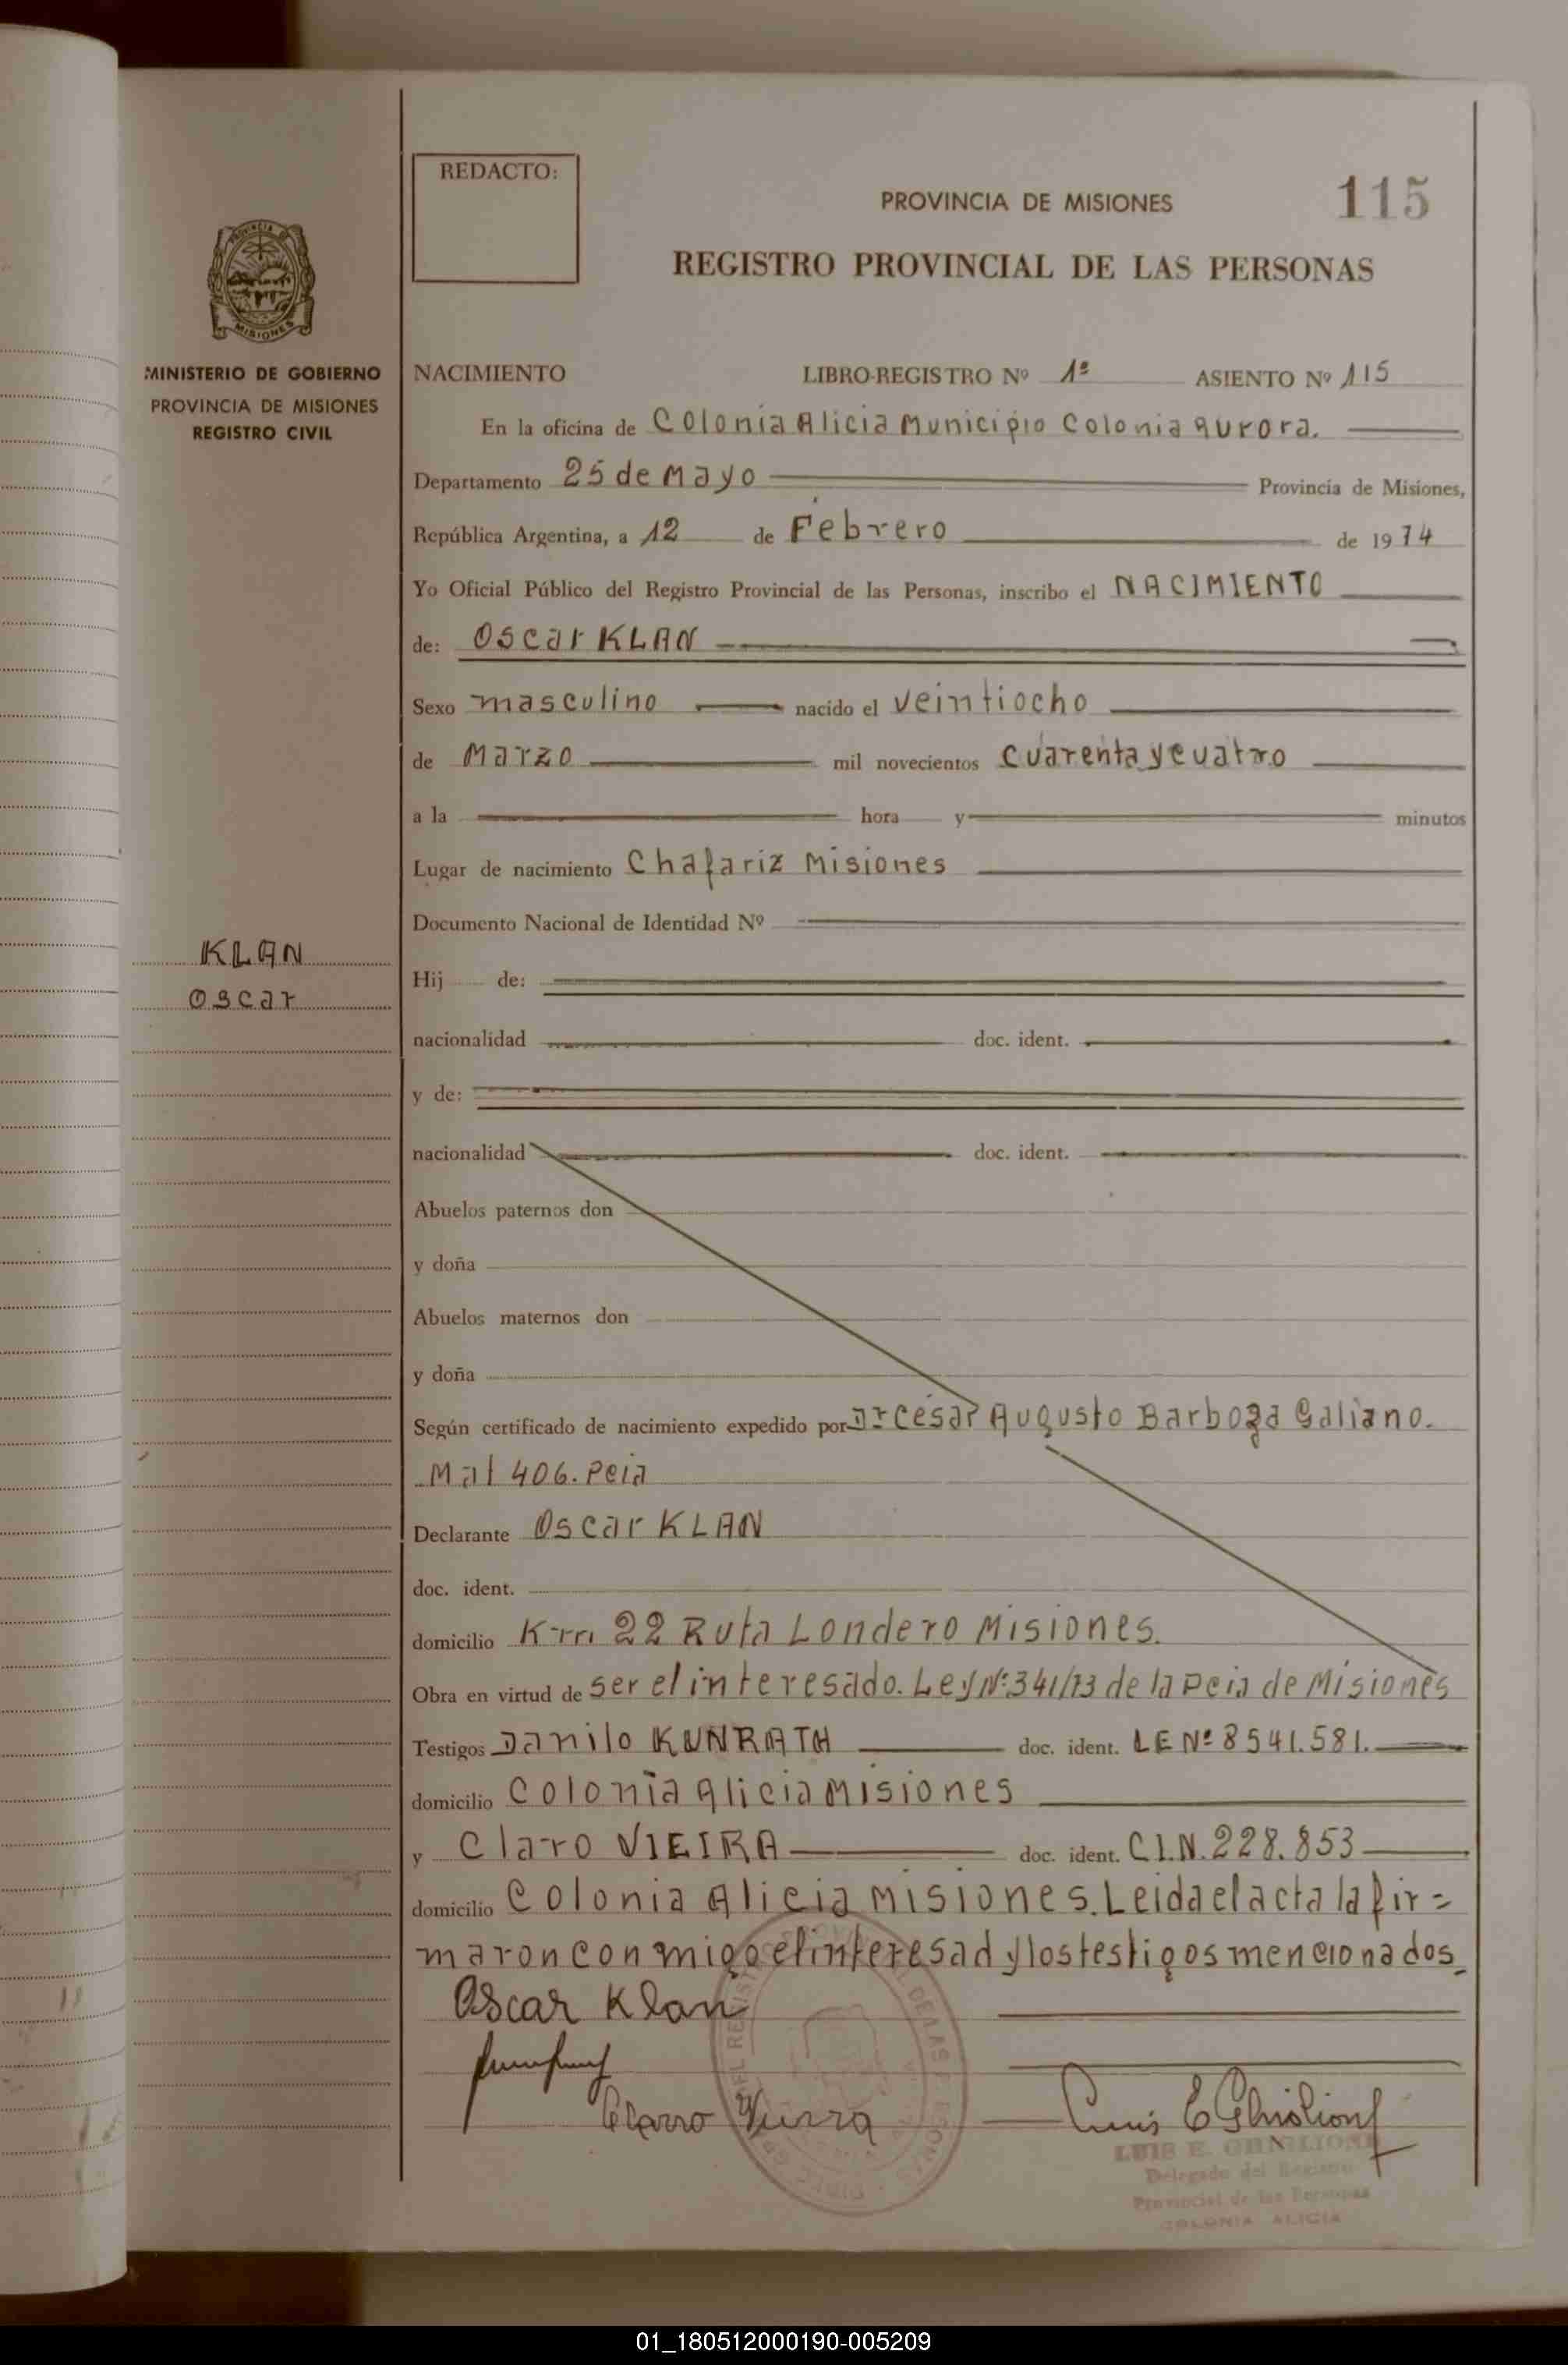 REDACTO:
PROVINCIA DE MISIONES
115
REGISTRO PROVINCIAL DE LAS PERSONAS
MISIONES
MINISTERIO DE GOBIERNO
PROVINCIA DE MISIONES
REGISTRO CIVIL
NACIMIENTO LIBRO-REGISTRO Nº 1º ASIENTO Nº 115
En la oficina de Colonia Alicia Municipio Colonia Aurora.
Departamento 25 de Mayo Provincia de Misiones,
República Argentina, a 12 de Febrero de 1974
Yo Oficial Público del Registro Provincial de las Personas, inscribo el NACIMIENTO
de: Oscar KLAN
Sexo masculino nacido el veintiocho
de Marzo mil novecientos cuarenta y cuatro
a la hora y minutos
Lugar de nacimiento Chafariz Misiones
Documento Nacional de Identidad Nº
KLAN
Oscar
Hij de:
nacionalidad doc. ident.
y de:
nacionalidad doc. ident.
Abuelos paternos don
y doña
Abuelos maternos don
y doña
Según certificado de nacimiento expedido por Dr César Augusto Barboza Galiano.
Mat 406. Pcia
Declarante Oscar KLAN
doc. ident.
domicilio Km 22 Ruta Londero Misiones.
Obra en virtud de ser el interesado. Ley Nº 341/73 de la Pcia de Misiones
Testigos Danilo KUNRATH doc. ident. LE Nº 8541.581.
domicilio Colonia Alicia Misiones
y Claro VIEIRA doc. ident. C.I.N. 228.853
domicilio Colonia Alicia Misiones. Leida el acta la fir=
maron conmigo el interesad y los testigos mencionados
Oscar Klan
Claro Vieira
LUIS E. GHIGLIONE
Delegado del Registro
Provincial de las Personas
COLONIA ALICIA
01_180512000190-005209